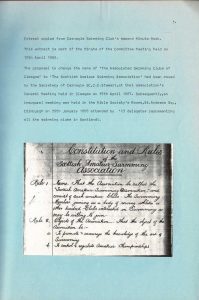 Extract copied from Carnegie Swimming Club's second Minute Book.
This extract is part of the Minute of the Committee Meeting held on
19th April 1888.
The proposal to change the name of 'The Associated Swimming Clubs of
Glasgow' to 'The Scottish Amateur Swimming Association' had been moved
by the Secretary of Carnegie SC,
at that association's
General Meeting held in Glasgow on
April 1887. Subsequently, an
inaugural meeting was held in the Bible Society's Rooms, St. Andrews Sq.,
Edinburgh on 28th January 1888 attended by
delegates representing
all the swimming clubs in Scotland.
Constitution and Rules
of the
Scottish Amateur Swimming
Association
Rule 1. Name. That the Association be called the
Scottish Amateur Swimming Association, and
consist of such amateur Clubs, the Swimming
Sections forming as a body of among Athletic or
other limited Clubs interested in Swimming as
may be willing to join.
Rule 2. Objects of the Association. That the objects of the
Association be:-
a To promote & encourage the knowledge of the art of
Swimming
b To control & regulate Amateur Championships